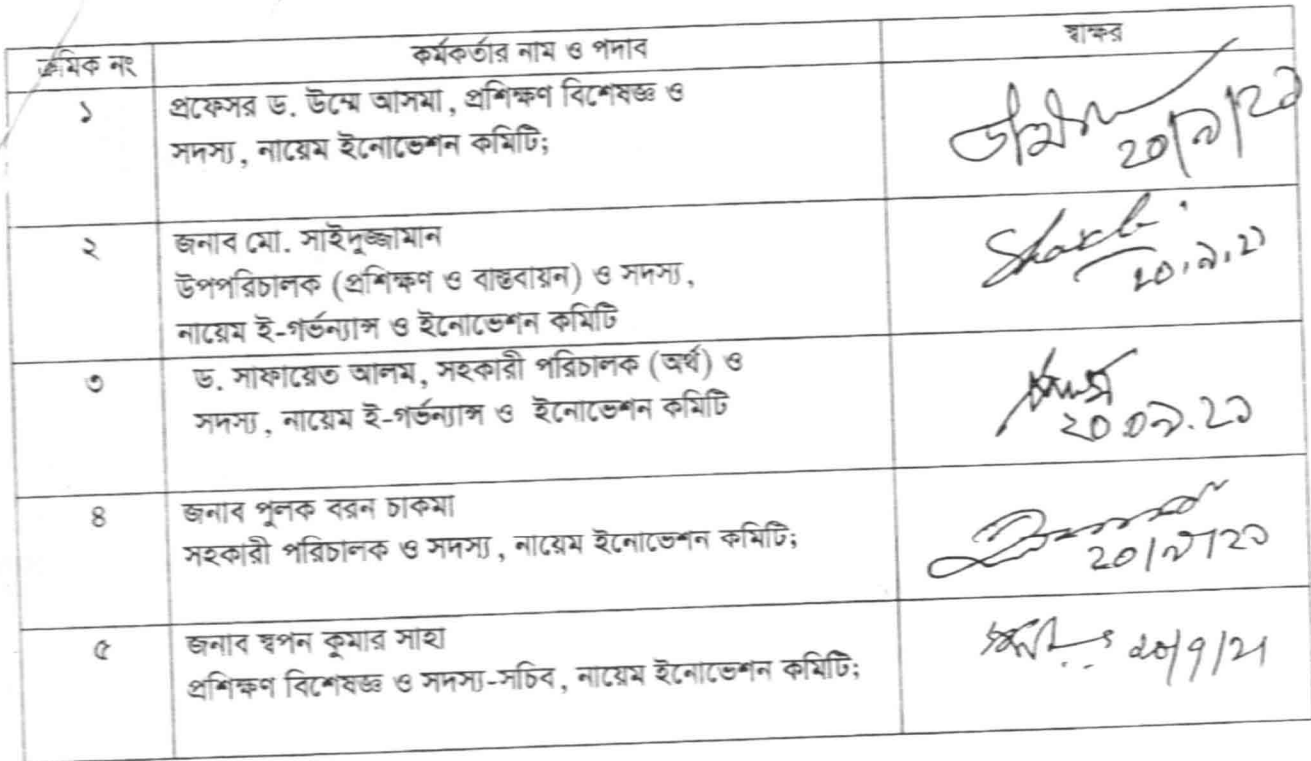 ক্রমিক নং কর্মকর্তার নাম ও পদাব স্বাক্ষর
১ প্রফেসর ড. উম্মে আসমা, প্রশিক্ষণ বিশেষজ্ঞ ও
সদস্য, নায়েম ইনোভেশন কমিটি;
২০/৯/২১
২ জনাব মো. সাইদুজ্জামান
উপপরিচালক (প্রশিক্ষণ ও বাস্তবায়ন) ও সদস্য,
নায়েম ই-গর্ভন্যান্স ও ইনোভেশন কমিটি
২০.৯.২১
৩ ড. সাফায়েত আলম, সহকারী পরিচালক (অর্থ) ও
সদস্য, নায়েম ই-গর্ভন্যান্স ও ইনোভেশন কমিটি
২০.০৯.২১
৪ জনাব পুলক বরন চাকমা
সহকারী পরিচালক ও সদস্য, নায়েম ইনোভেশন কমিটি;
২০/৯/২১
৫ জনাব স্বপন কুমার সাহা
প্রশিক্ষণ বিশেষজ্ঞ ও সদস্য-সচিব, নায়েম ইনোভেশন কমিটি;
20/9/21